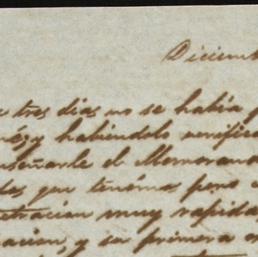 Diciemb
tres dias no se habia
y habiendolo verific
enseñarle el Memoran
que tenemos pero
tracion muy rapida
acion, y su primera